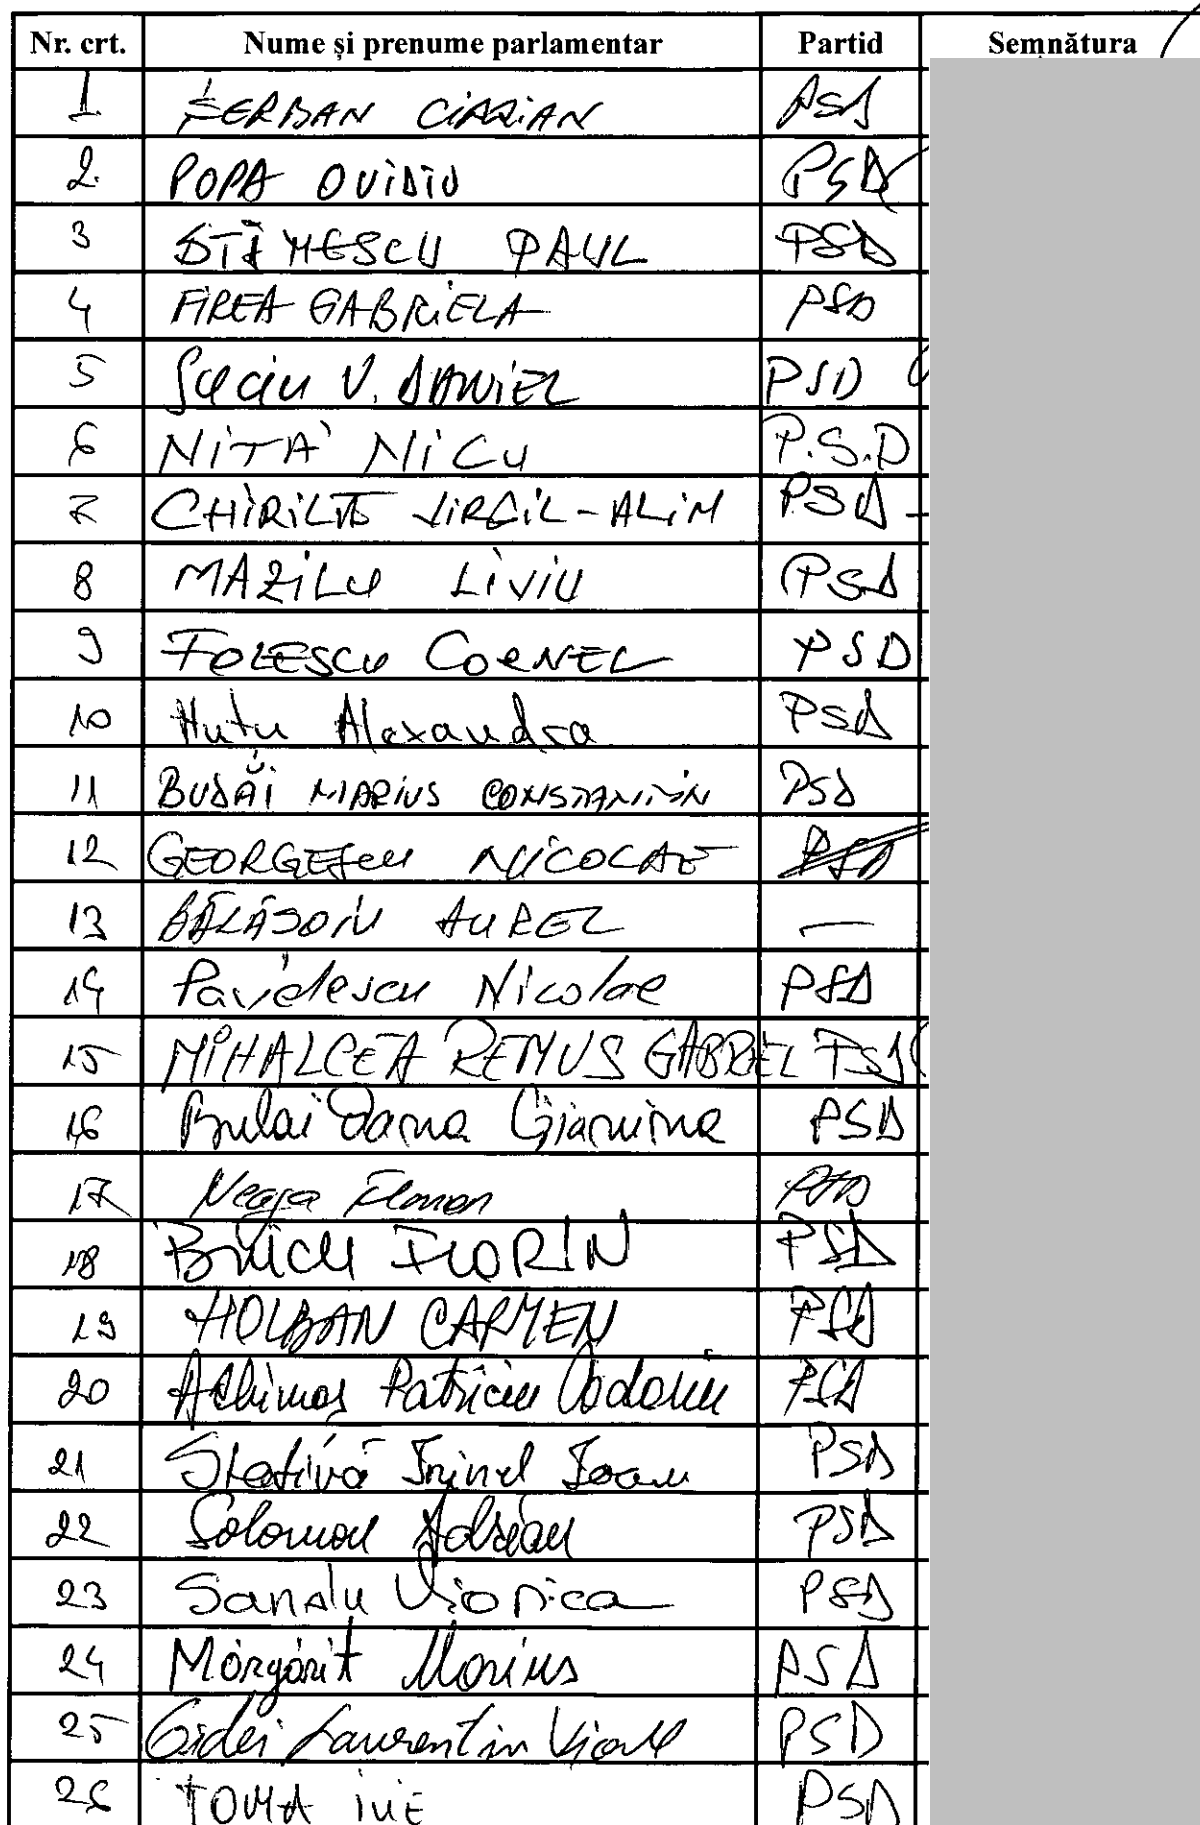 Nr. crt. Nume și prenume parlamentar Partid Semnătura
1. ȘERBAN CIPRIAN PSD
2. POPA OVIDIU PSD
3 STĂNESCU PAUL PSD
4 FIREA GABRIELA PSD
5 Suciu V. DANIEL PSD
6 NIȚĂ NICU P.S.D
7 CHIRILĂ VIRGIL-ALIN PSD
8 MAZILU LIVIU PSD
9 FOLESCU CORNEL PSD
10 Huțu Alexandra PSD
11 BUDĂI MARIUS CONSTANTIN PSD
12 GEORGESCU NICOLAE PSD
13 BĂLĂȘOIU AUREL —
14 Pavelescu Nicolae PSD
15 MIHALCEA REMUS GABRIEL PSD
16 Bulai Oana Gianina PSD
17 Neaga Florian PSD
18 FLORIN PSD
19 HOLBAN CARMEN PSD
20 Achimaș Patriciu PSD
21 Stativă Irinel Ioan PSD
22 Solomon Adrian PSD
23 Sandu Viorica PSD
24 Mărgărit Marius PSD
25 Gidei Laurentiu Viorel PSD
26 TOMA ILIE PSD